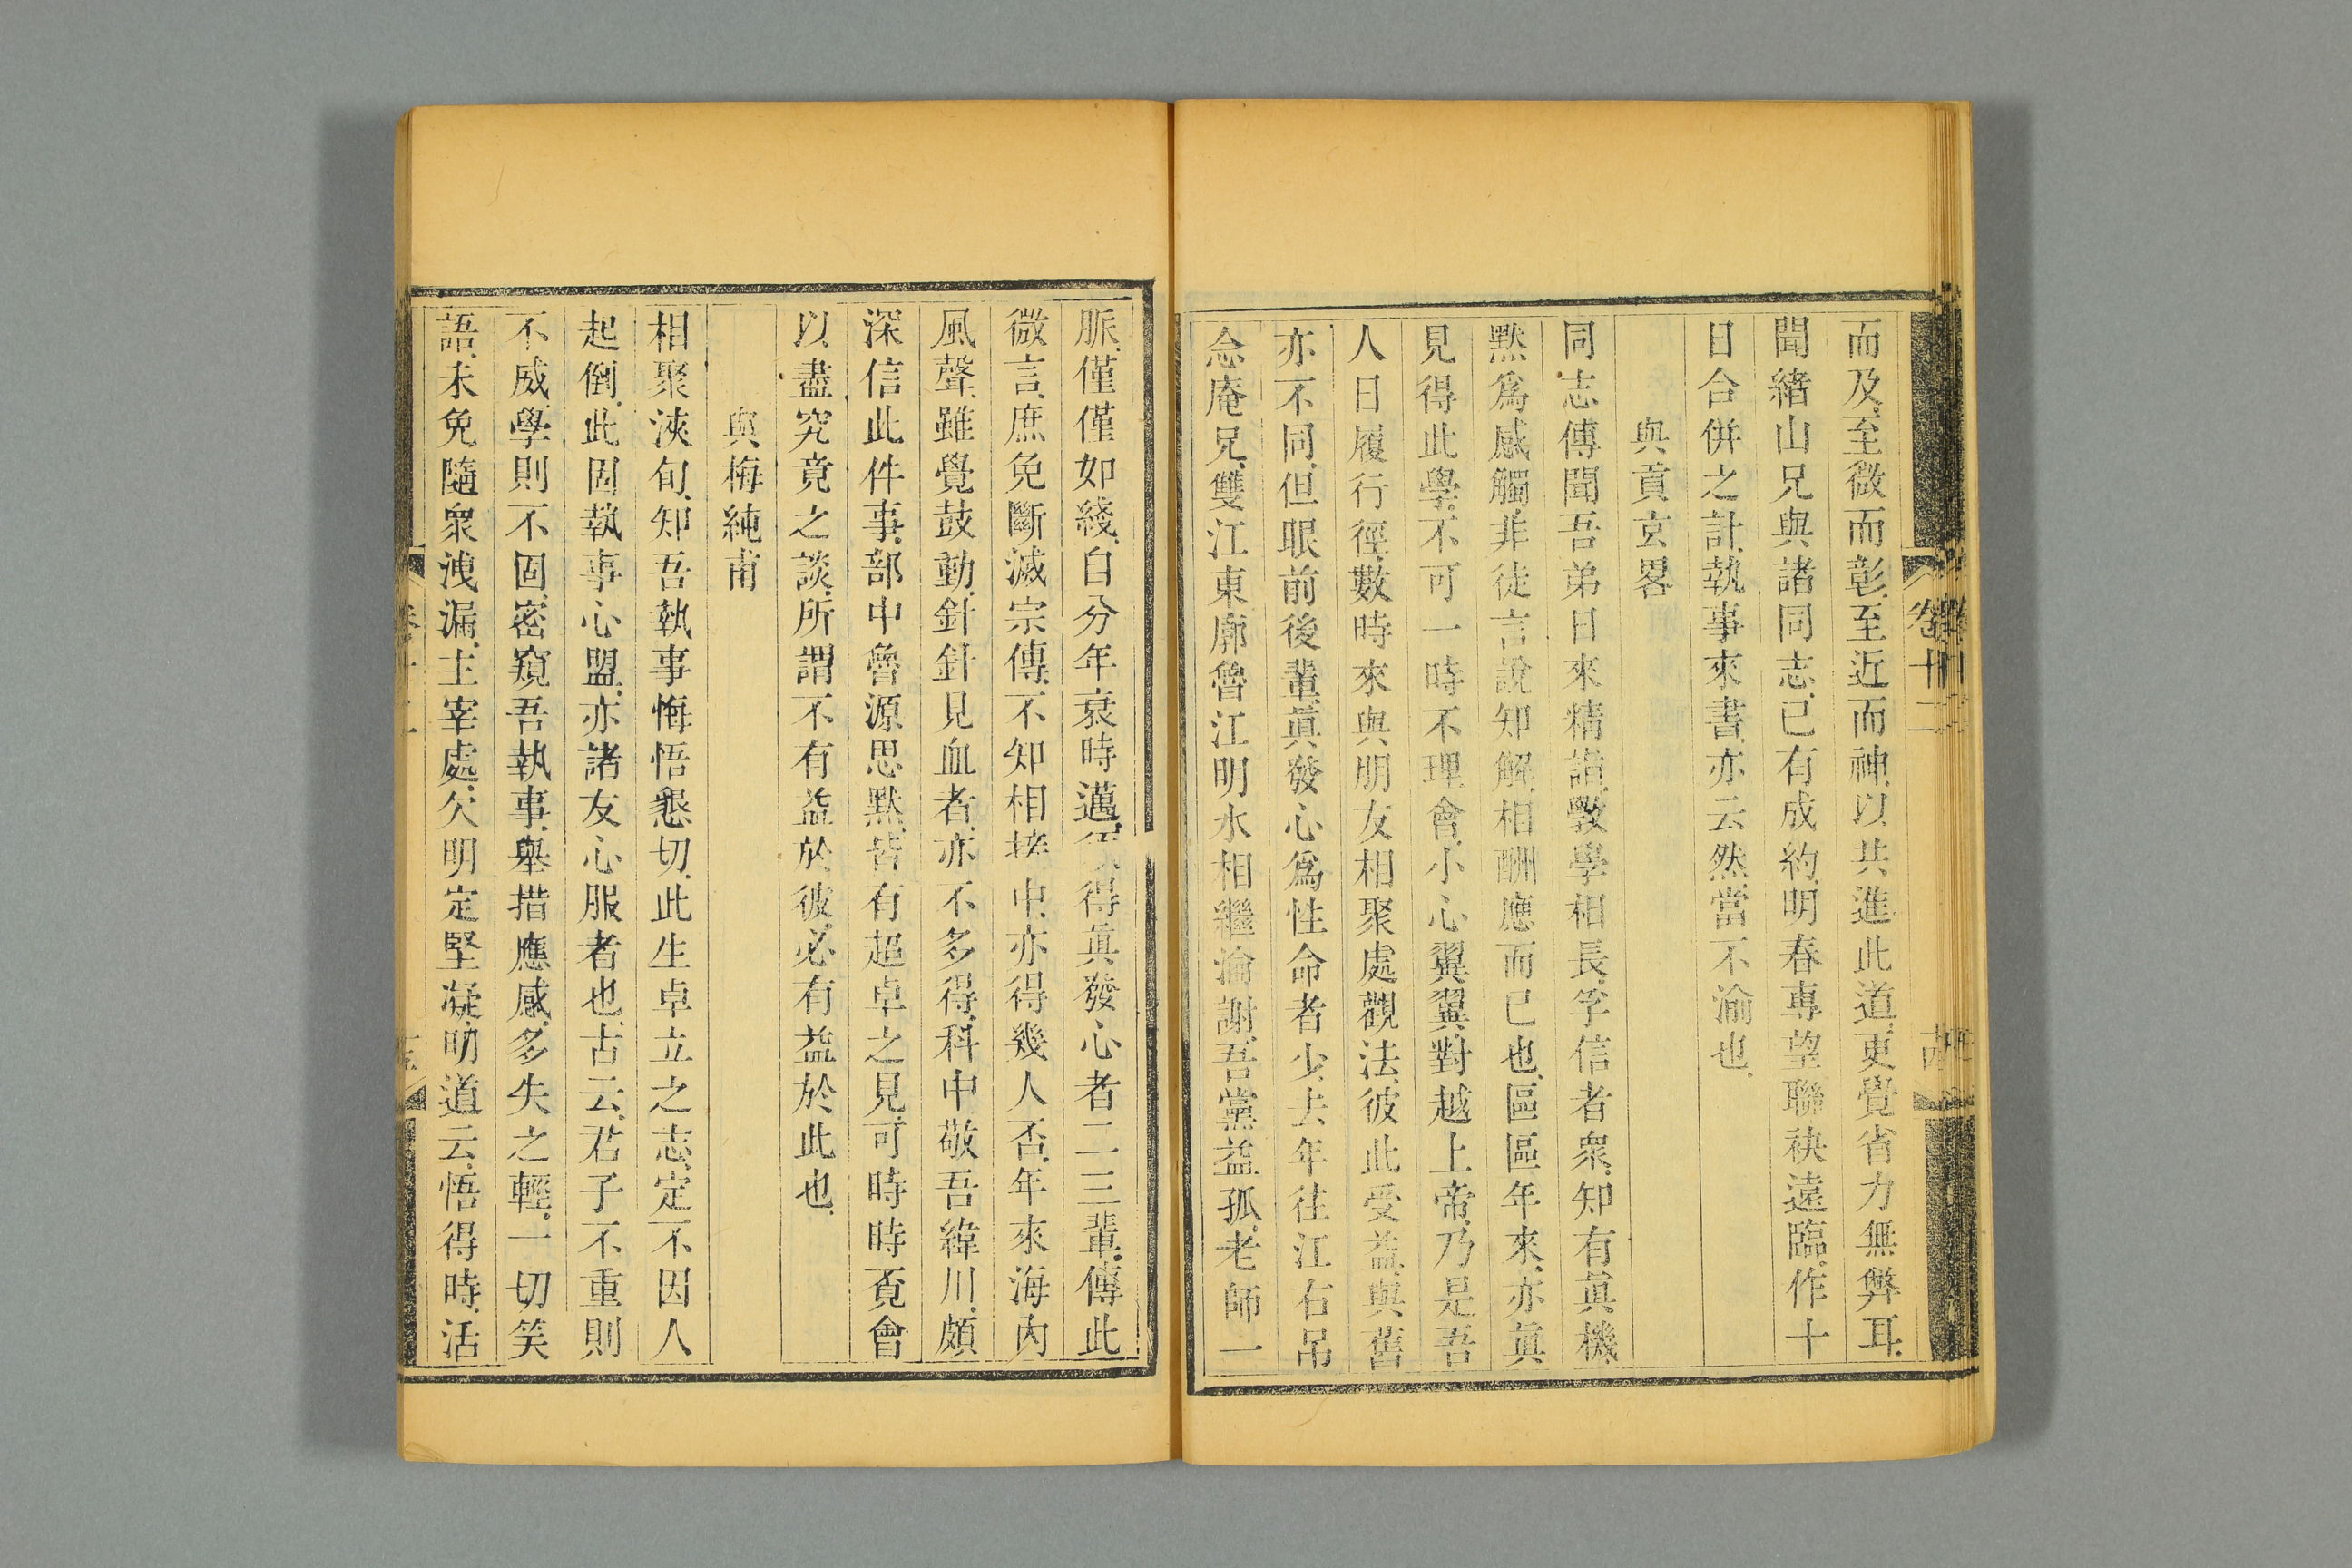 而及至微而彰至近而神以共進此道更覺省力無弊耳
聞緒山兄與諸同志已有成約明春專望聯袂遠臨作十
日合併之計執事來書亦云然當不渝也
與貢玄畧
同志傳聞吾弟日來精詣斆學相長孚信者衆知有眞機
黙爲感觸非徒言說知解相酬應而已也區區年來亦眞
見得此學不可一時不理會小心翼翼對越上帝乃是吾
人日履行徑數時來與朋友相聚處觀法彼此受益與舊
亦不同但眼前後輩眞發心爲性命者少去年往江右吊
念庵兄雙江東廓魯江明水相繼淪謝吾黨益孤老師一
脈僅僅如綫自分年衰時邁得眞發心者二三輩傳此
微言庶免斷滅宗傳不知相接中亦得幾人否年來海內
風聲雖覺鼓動針針見血者亦不多得科中敬吾緯川頗
深信此件事部中魯源思黙皆有超卓之見可時時覔會
以盡究竟之談所謂不有益於彼必有益於此也
與梅純甫
相聚浹旬知吾執事悔悟懇切此生卓立之志定不因人
起倒此固執事心盟亦諸友心服者也古云君子不重則
不威學則不固密窺吾執事舉措應感多失之輕一切笑
語未免隨衆洩漏主宰處欠明定堅凝明道云悟得時活
卷十二